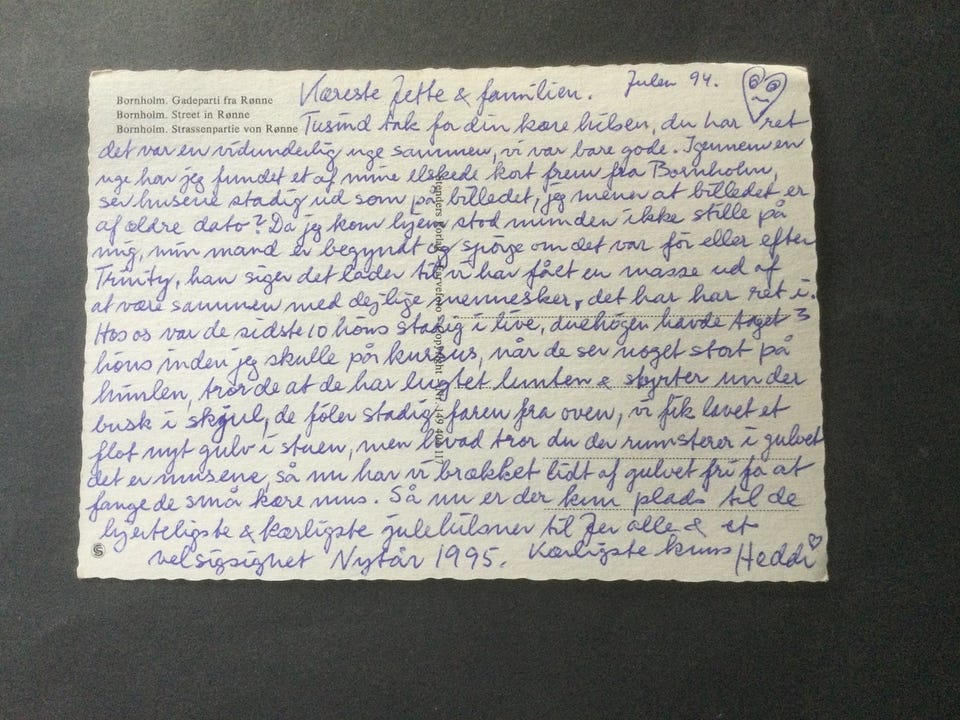 Bornholm. Gadeparti fra Rønne
Bornholm. Street in Rønne
Bornholm. Strassenpartie von Rønne
Julen 94.
Kæreste Jette & familien.
Tusind tak for din kære hilsen, du har ret
det var en vidunderlig uge sammen, vi var bare gode. Igennem en
uge har jeg fundet et af mine elskede kort frem fra Bornholm,
ser husene stadig ud som på billedet, jeg mener at billedet er
af ældre dato? Da jeg kom hjem stod munden ikke stille på
mig, min mand er begyndt og spörge om det var för eller efter
Trinity, han siger det lader til vi har fået en masse ud af
at være sammen med dejlige mennesker, det har har ret i.
Hos os var de sidste 10 höns stadig i live, duehögen havde taget 3
höns inden jeg skulle på kursus, når de ser noget stort på
himlen, tror de at de har lugtet lunten & styrter under
busk i skjul, de föler stadig faren fra oven, vi fik lavet et
flot nyt gulv i stuen, men hvad tror du der rumsterer i gulvet
det er musene, så nu har vi brækket lidt af gulvet fri fo at
fange de små kære mus. Så nu er der kun plads til de
hjerteligste & kærligste julehilsner til Jer alle & et
velsigsighet Nytår 1995. Kærligste knus Heddi
Stenders Forlag
Farvefoto
Copyright
149 408 117